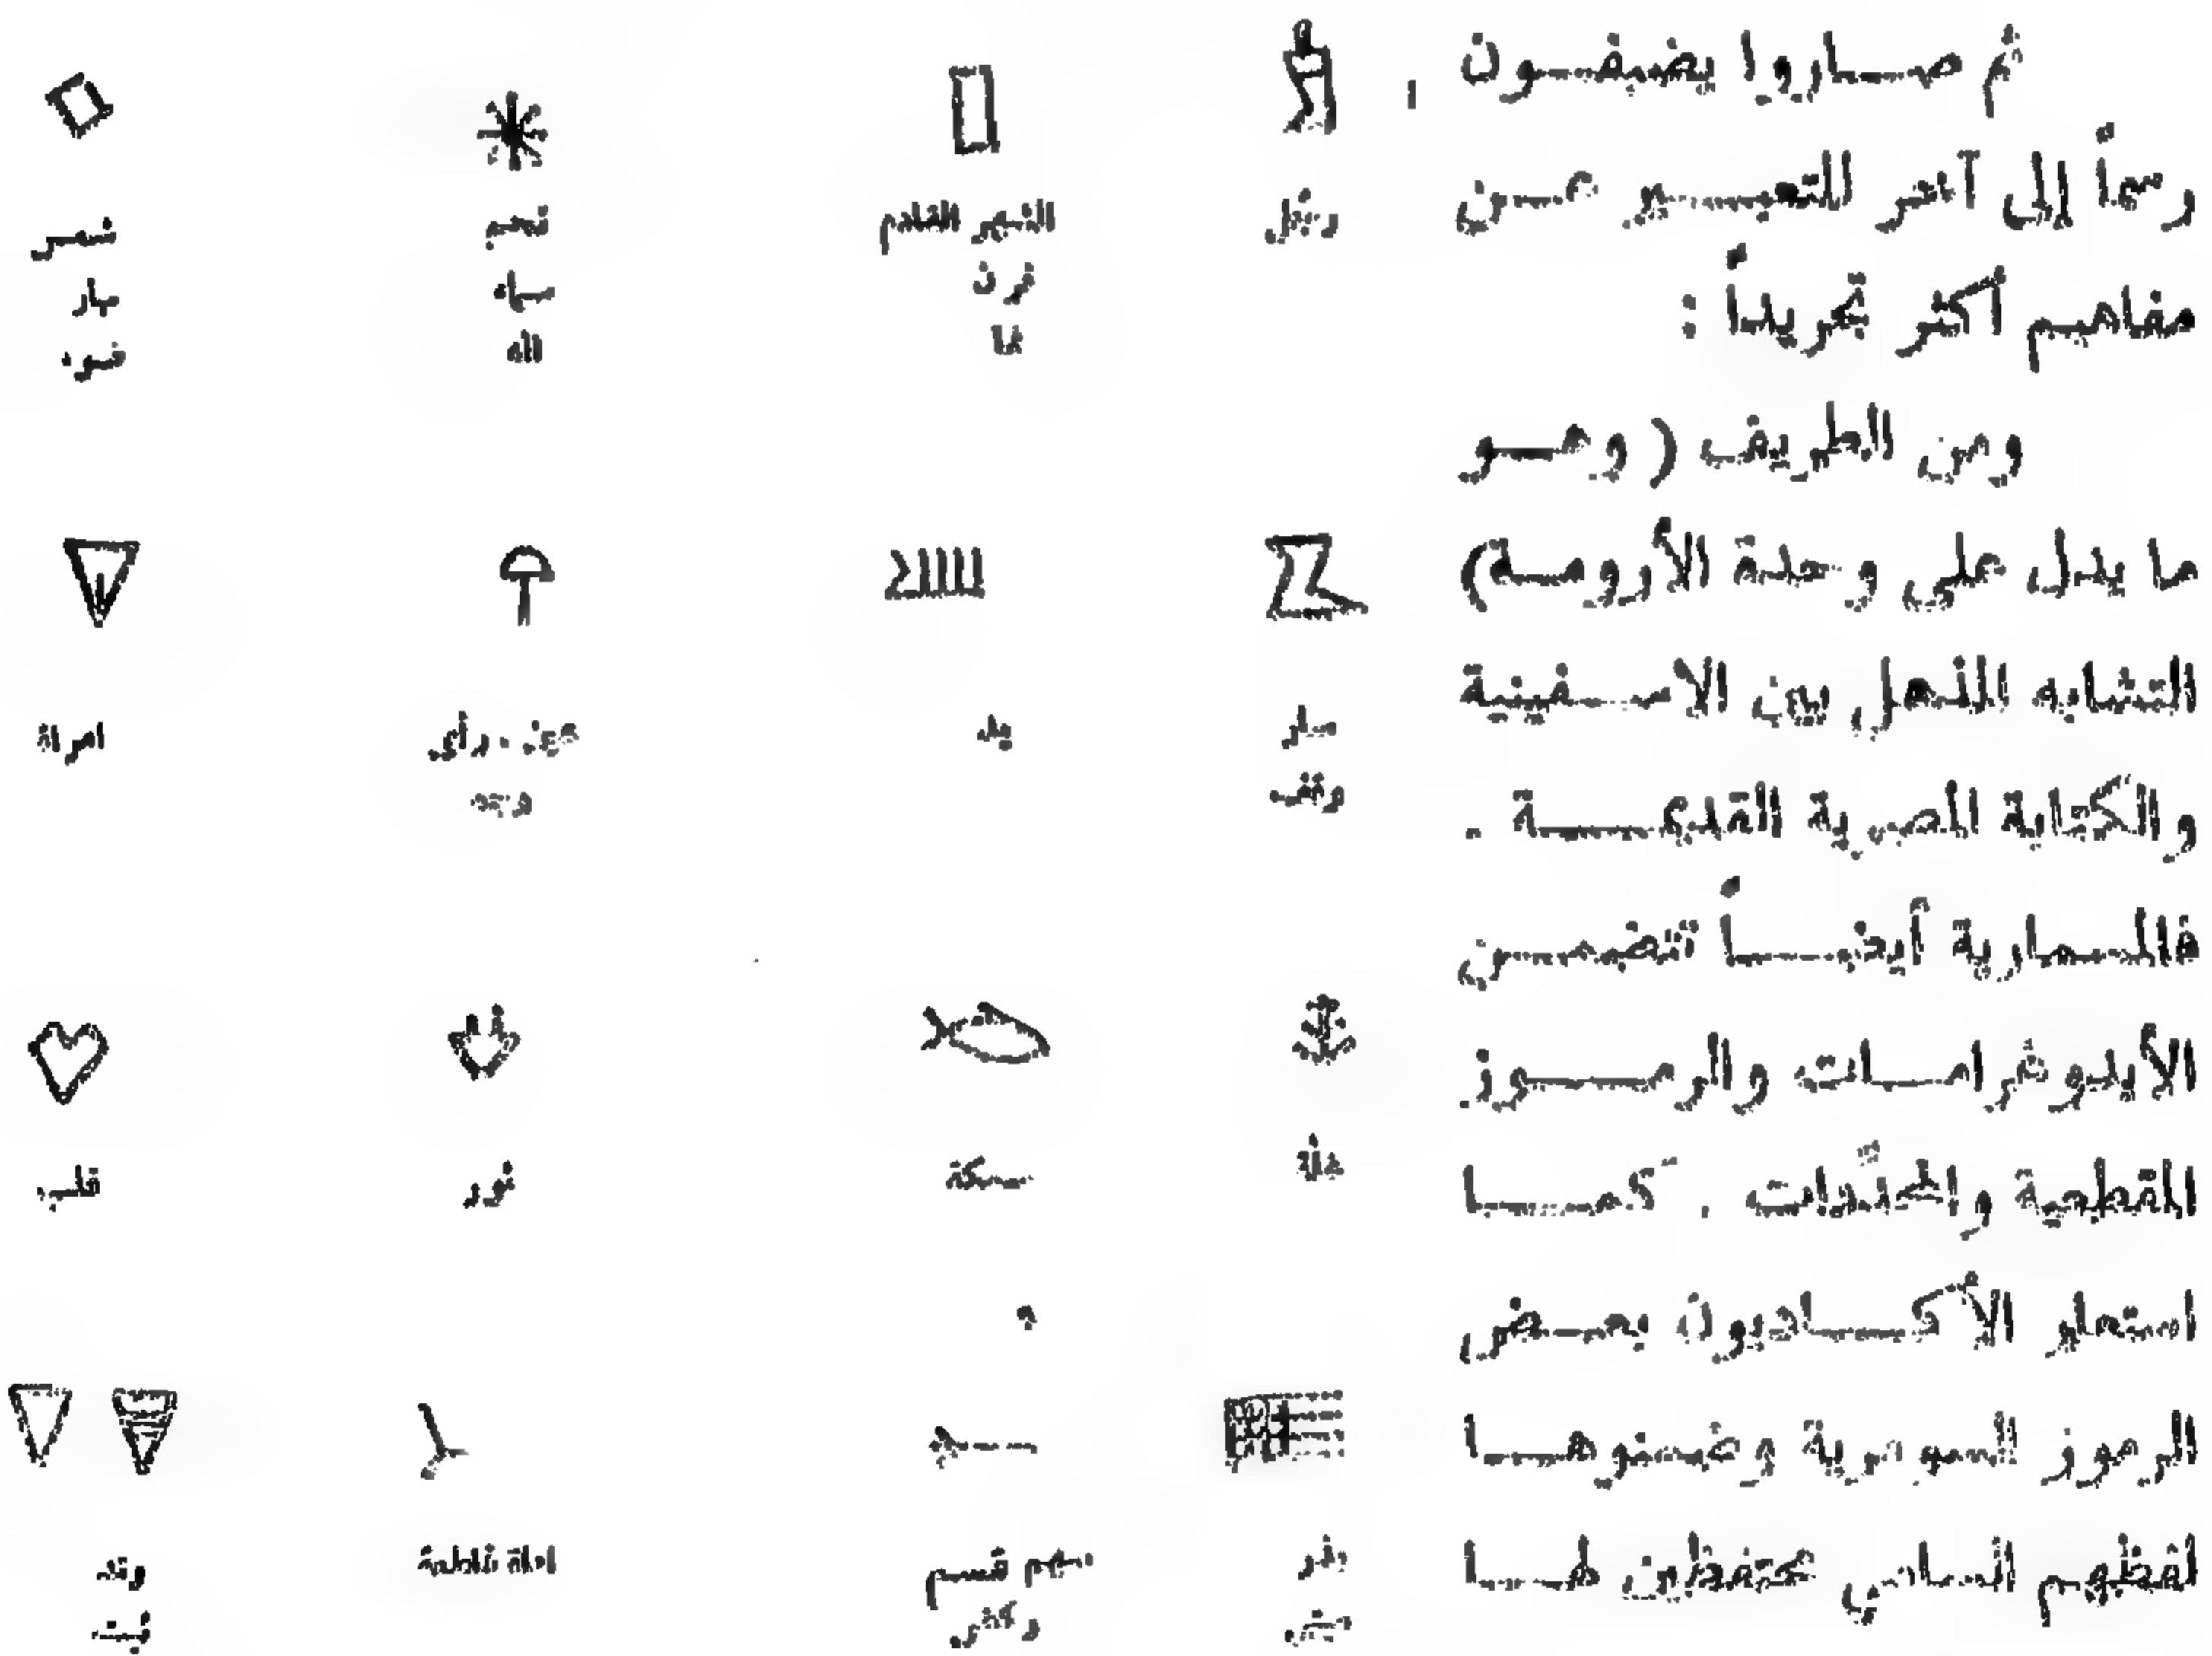 ثم صاروا يضيفون
رسماً إلى آخر للتعبير عن
مفاهيم أكثر تجريداً :
ومن الطريف ( وهو
ما يدل على وحدة الأرومة)
التشابه المذهل بين الاسفينية
والكتابة المصرية القديمة .
فالمسمارية أيضاً تتضمن
الأيديوغرامات والرموز
المقطعية والمحدّدات . كما
استعار الأكاديون بعض
الرموز السومرية وضمنوها
لفظهم السامي محتفظين لها
رجل
الشهر القادم
نجم
شمس
سماء
نهار
الله
سار
يد
عين . رأى
امرأة
وقف
سمكة
ثور
قلب
سهم قسم
اداة قاطعة
وتد
بذر